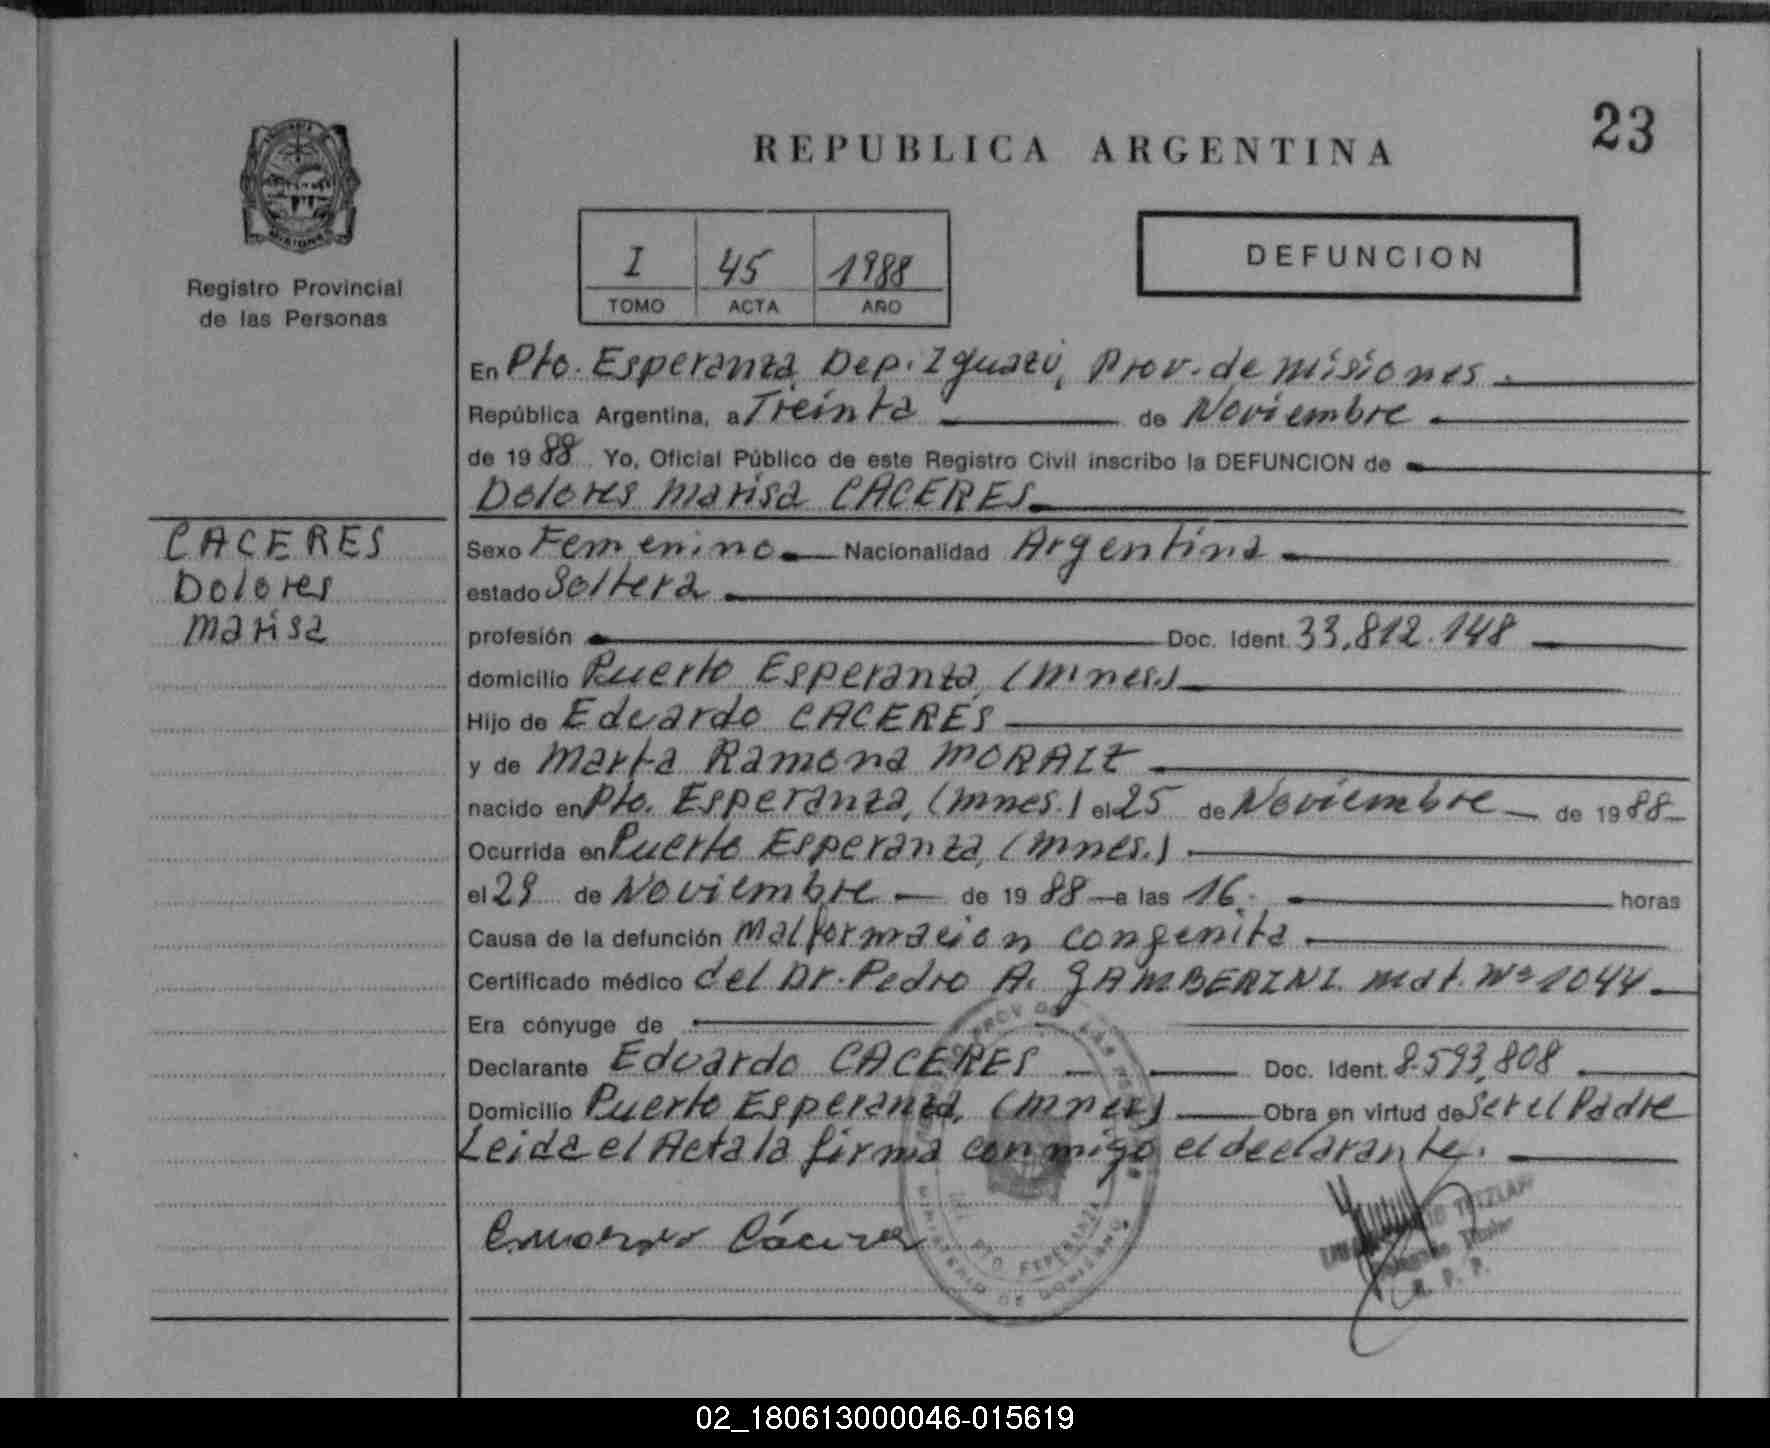 23
REPUBLICA ARGENTINA
I 45 1988
TOMO ACTA AÑO
DEFUNCION
MISIONES
Registro Provincial
de las Personas
En Pto. Esperanza, Dep. Iguazú, Prov. de Misiones.
República Argentina, a Treinta de Noviembre
de 1988 Yo, Oficial Público de este Registro Civil inscribo la DEFUNCION de
Dolores Marisa CACERES
CACERES
Dolores
Marisa
Sexo Femenino Nacionalidad Argentina
estado Soltera
profesión Doc. Ident. 33.812.148
domicilio Puerto Esperanza, (Mnes.)
Hijo de Eduardo CACERES
y de Marta Ramona MORAIZ
nacido en Pto. Esperanza, (Mnes.) el 25 de Noviembre de 1988
Ocurrida en Puerto Esperanza, (Mnes.)
el 29 de Noviembre de 1988 a las 16 horas
Causa de la defunción Malformacion congenita
Certificado médico del Dr. Pedro A. GAMBERINI Mat. Nº 1044
Era cónyuge de
Declarante Eduardo CACERES Doc. Ident. 8.593.808
Domicilio Puerto Esperanza, (Mnes) Obra en virtud de Ser el Padre
Leida el Acta la firma conmigo el declarante.
Cáceres
PTO ESPERANZA
MINISTERIO DE GOBIERNO
TETZLAFF
Delegado Titular
R. P. P.
02_180613000046-015619